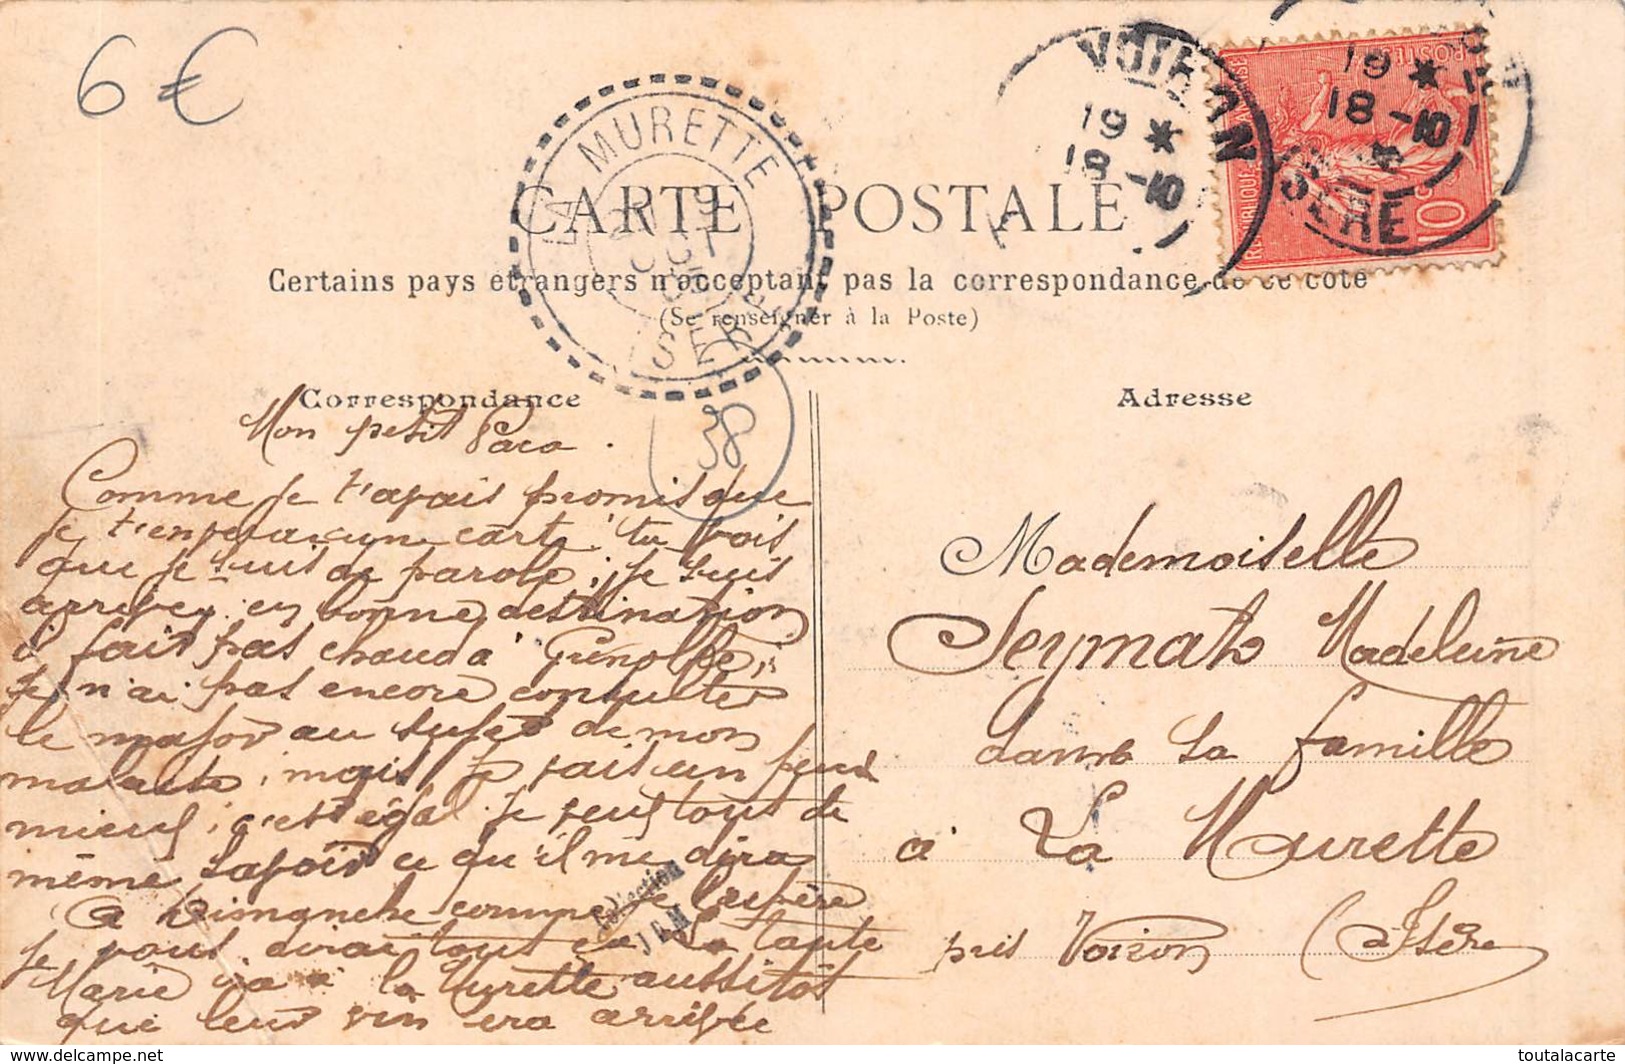 6 €
LA MURETTE
ISERE
VOIRON
19 *
18 -10
ISERE
19 *
18 -10
POSTES
10
CARTE POSTALE
Certains pays étrangers n'acceptant pas la correspondance de ce côté
(Se renseigner à la Poste)
Correspondance
Adresse
38
Mon petit Paco.
Comme je t'avais promis que
je t'enverai une carte, tu vois
que je suis de parole, je suis
arrivez en bonne destination
il fait pas chaud à Grenoble,
je n'ai pas encore consulter
le major au sujet de mon
malaise, mais je vais un peux
mieux, c'est égal je veux tout de
même savoir ce qu'il me dira
A Dimanche comme je l'espère
je vous dirai tout ça La tante
Marie ira à la Murette aussitôt
que leur vin era arrivée
Collection
Mademoiselle
Seymat Madeleine
dans sa famille
à La Murette
près Voiron (Isère
delcampe.net
toutalacarte